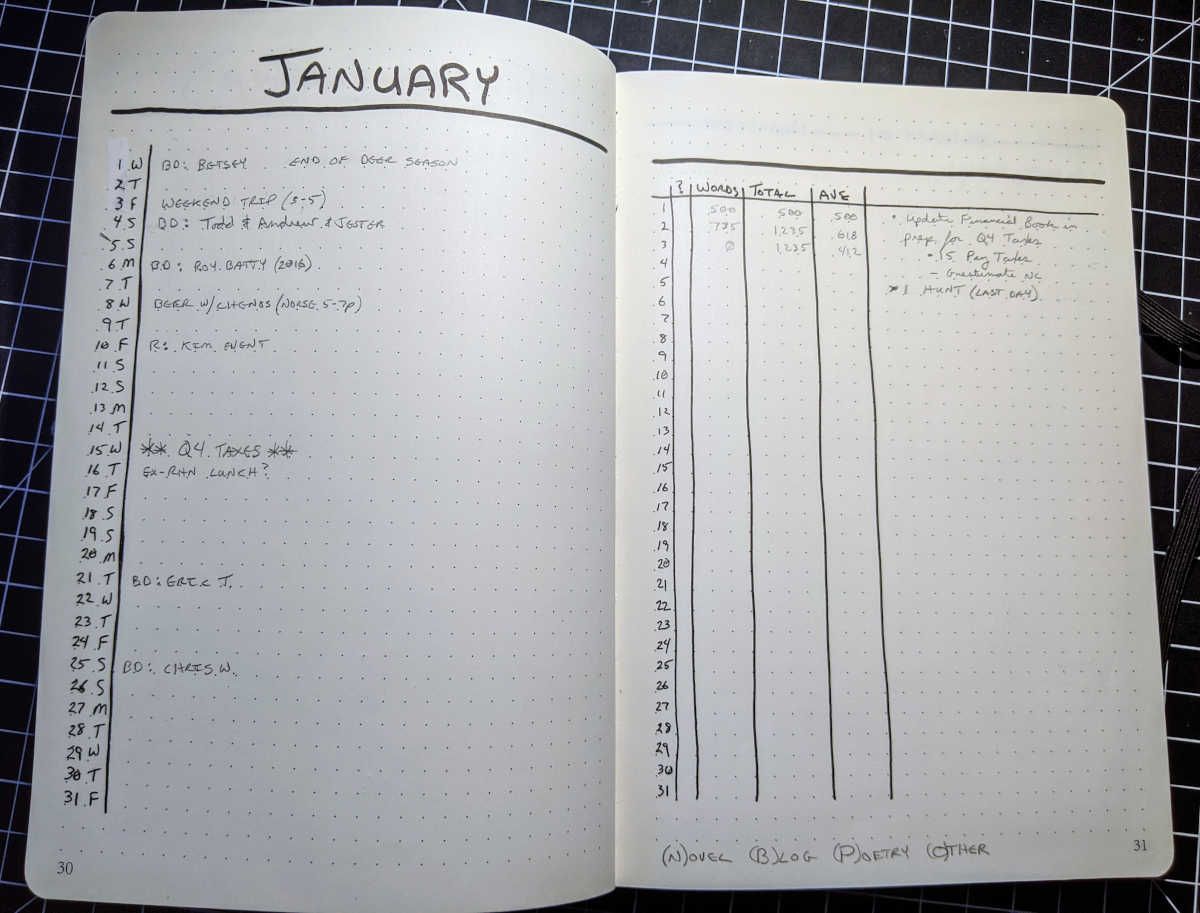 JANUARY
1 W BD: BETSEY END OF DEER SEASON
2 T
3 F WEEKEND TRIP (3-5)
4 S BD: Todd & Andrew & JESTER
5 S
6 M BD: ROY BATTY (2016)
7 T
8 W BEER W/ CHENDS (NORSE 5-7p)
9 T
10 F R: KIM EVENT
11 S
12 S
13 M
14 T
15 W ** Q4 TAXES **
16 T EX-RHN LUNCH?
17 F
18 S
19 S
20 M
21 T BD: ERIC T.
22 W
23 T
24 F
25 S BD: CHRIS W.
26 S
27 M
28 T
29 W
30 T
31 F
30
? WORDS TOTAL AVE
1 500 500 500
2 735 1,235 618
3 0 1,235 412
4
5
6
7
8
9
10
11
12
13
14
15
16
17
18
19
20
21
22
23
24
25
26
27
28
29
30
31
• Update Financial Book in
prep for Q4 Taxes
• 15 Pay Taxes
- Guestimate NC
1 HUNT (LAST DAY)
(N)OVEL (B)LOG (P)OETRY (O)THER
31